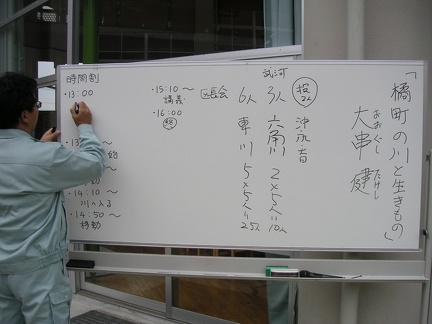 「橘町の川と生きもの」
おおぐし たけし
大串 健
時間割
・13:00
移動
・14:10〜
川へ入る
・14:50〜
移動
・15:10〜
講義
・16:00
終
区長会
6人
東川
5×5人=25人
武河
3人
六角川
2×5人=10人
沖永音